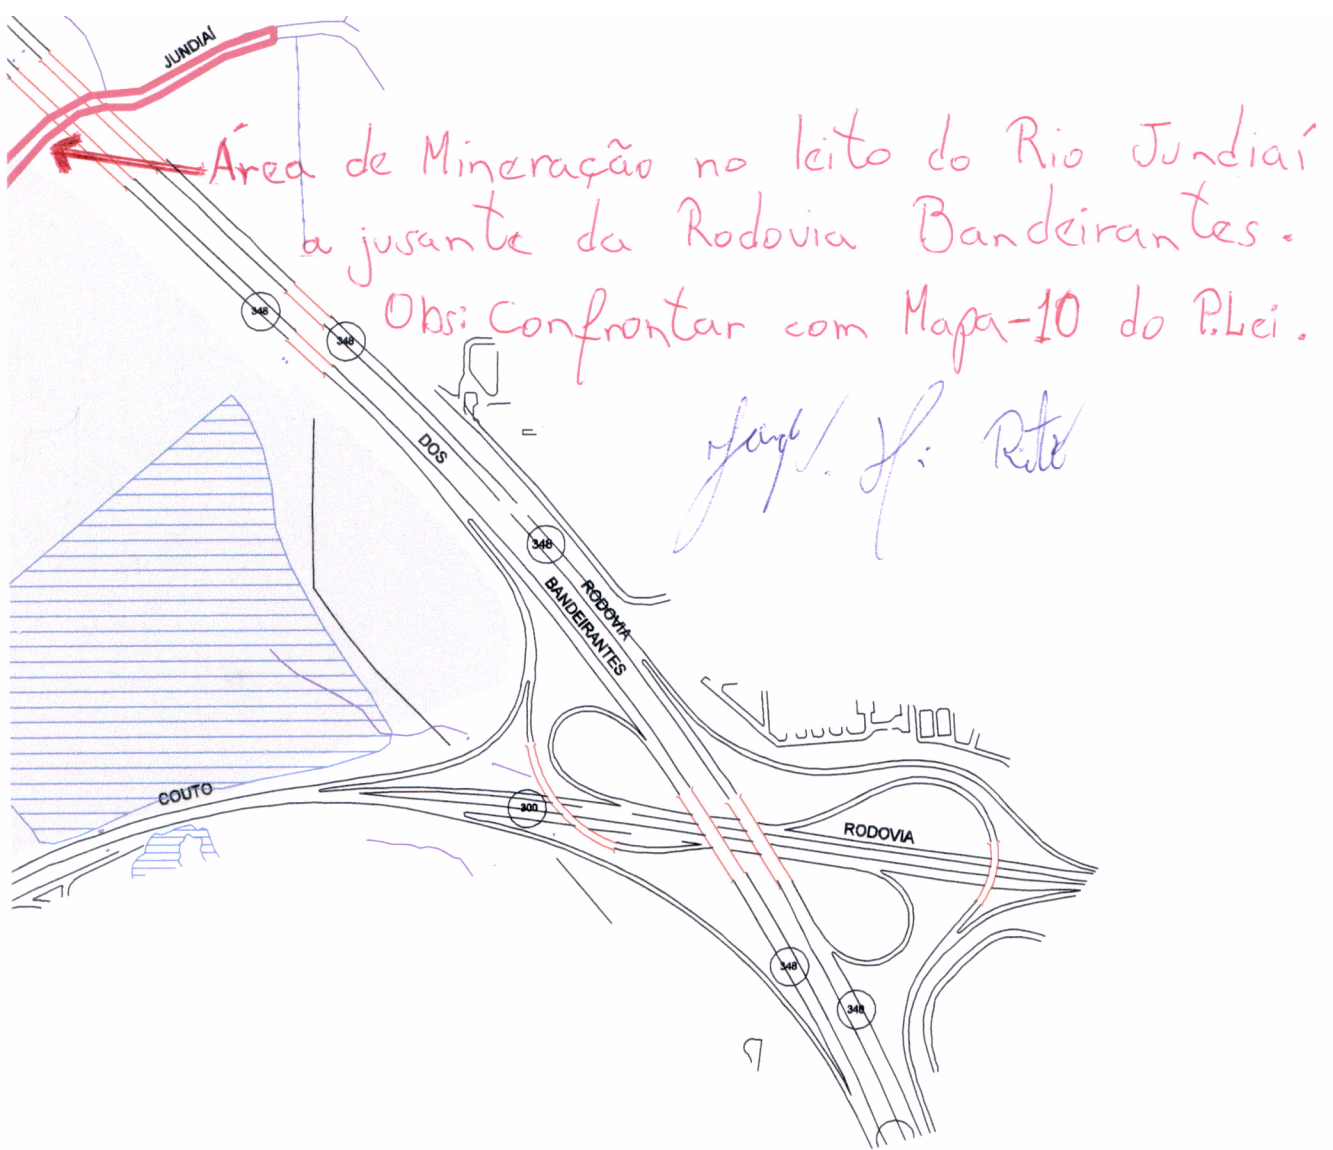 JUNDIAÍ
Área de Mineração no leito do Rio Jundiaí
a jusante da Rodovia Bandeirantes.
Obs: Confrontar com Mapa-10 do P.Lei.
348
348
DOS
348
RODOVIA
BANDEIRANTES
COUTO
300
RODOVIA
348
348